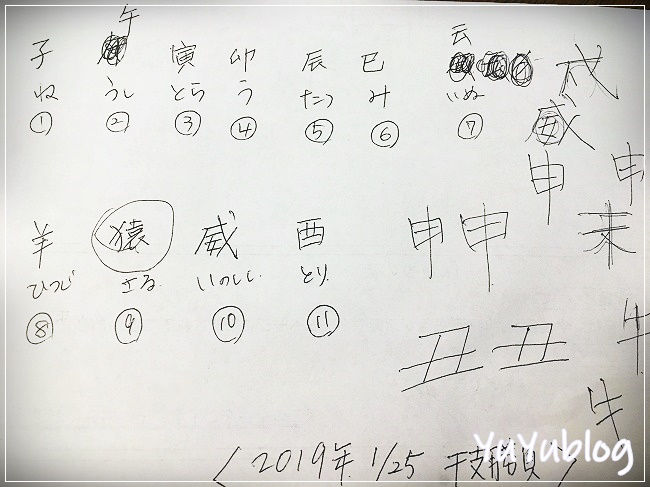 午
子 寅 卯 辰 巳 云
ね うし とら う たつ み いぬ
① ② ③ ④ ⑤ ⑥ ⑦
戌
威
申 申
羊 猿 威 酉 申 申 未
ひつじ さる いのしし とり
⑧ ⑨ ⑩ ⑪
丑 丑 牛
牛
〈2019年 1/25 干支 〉
YuYublog